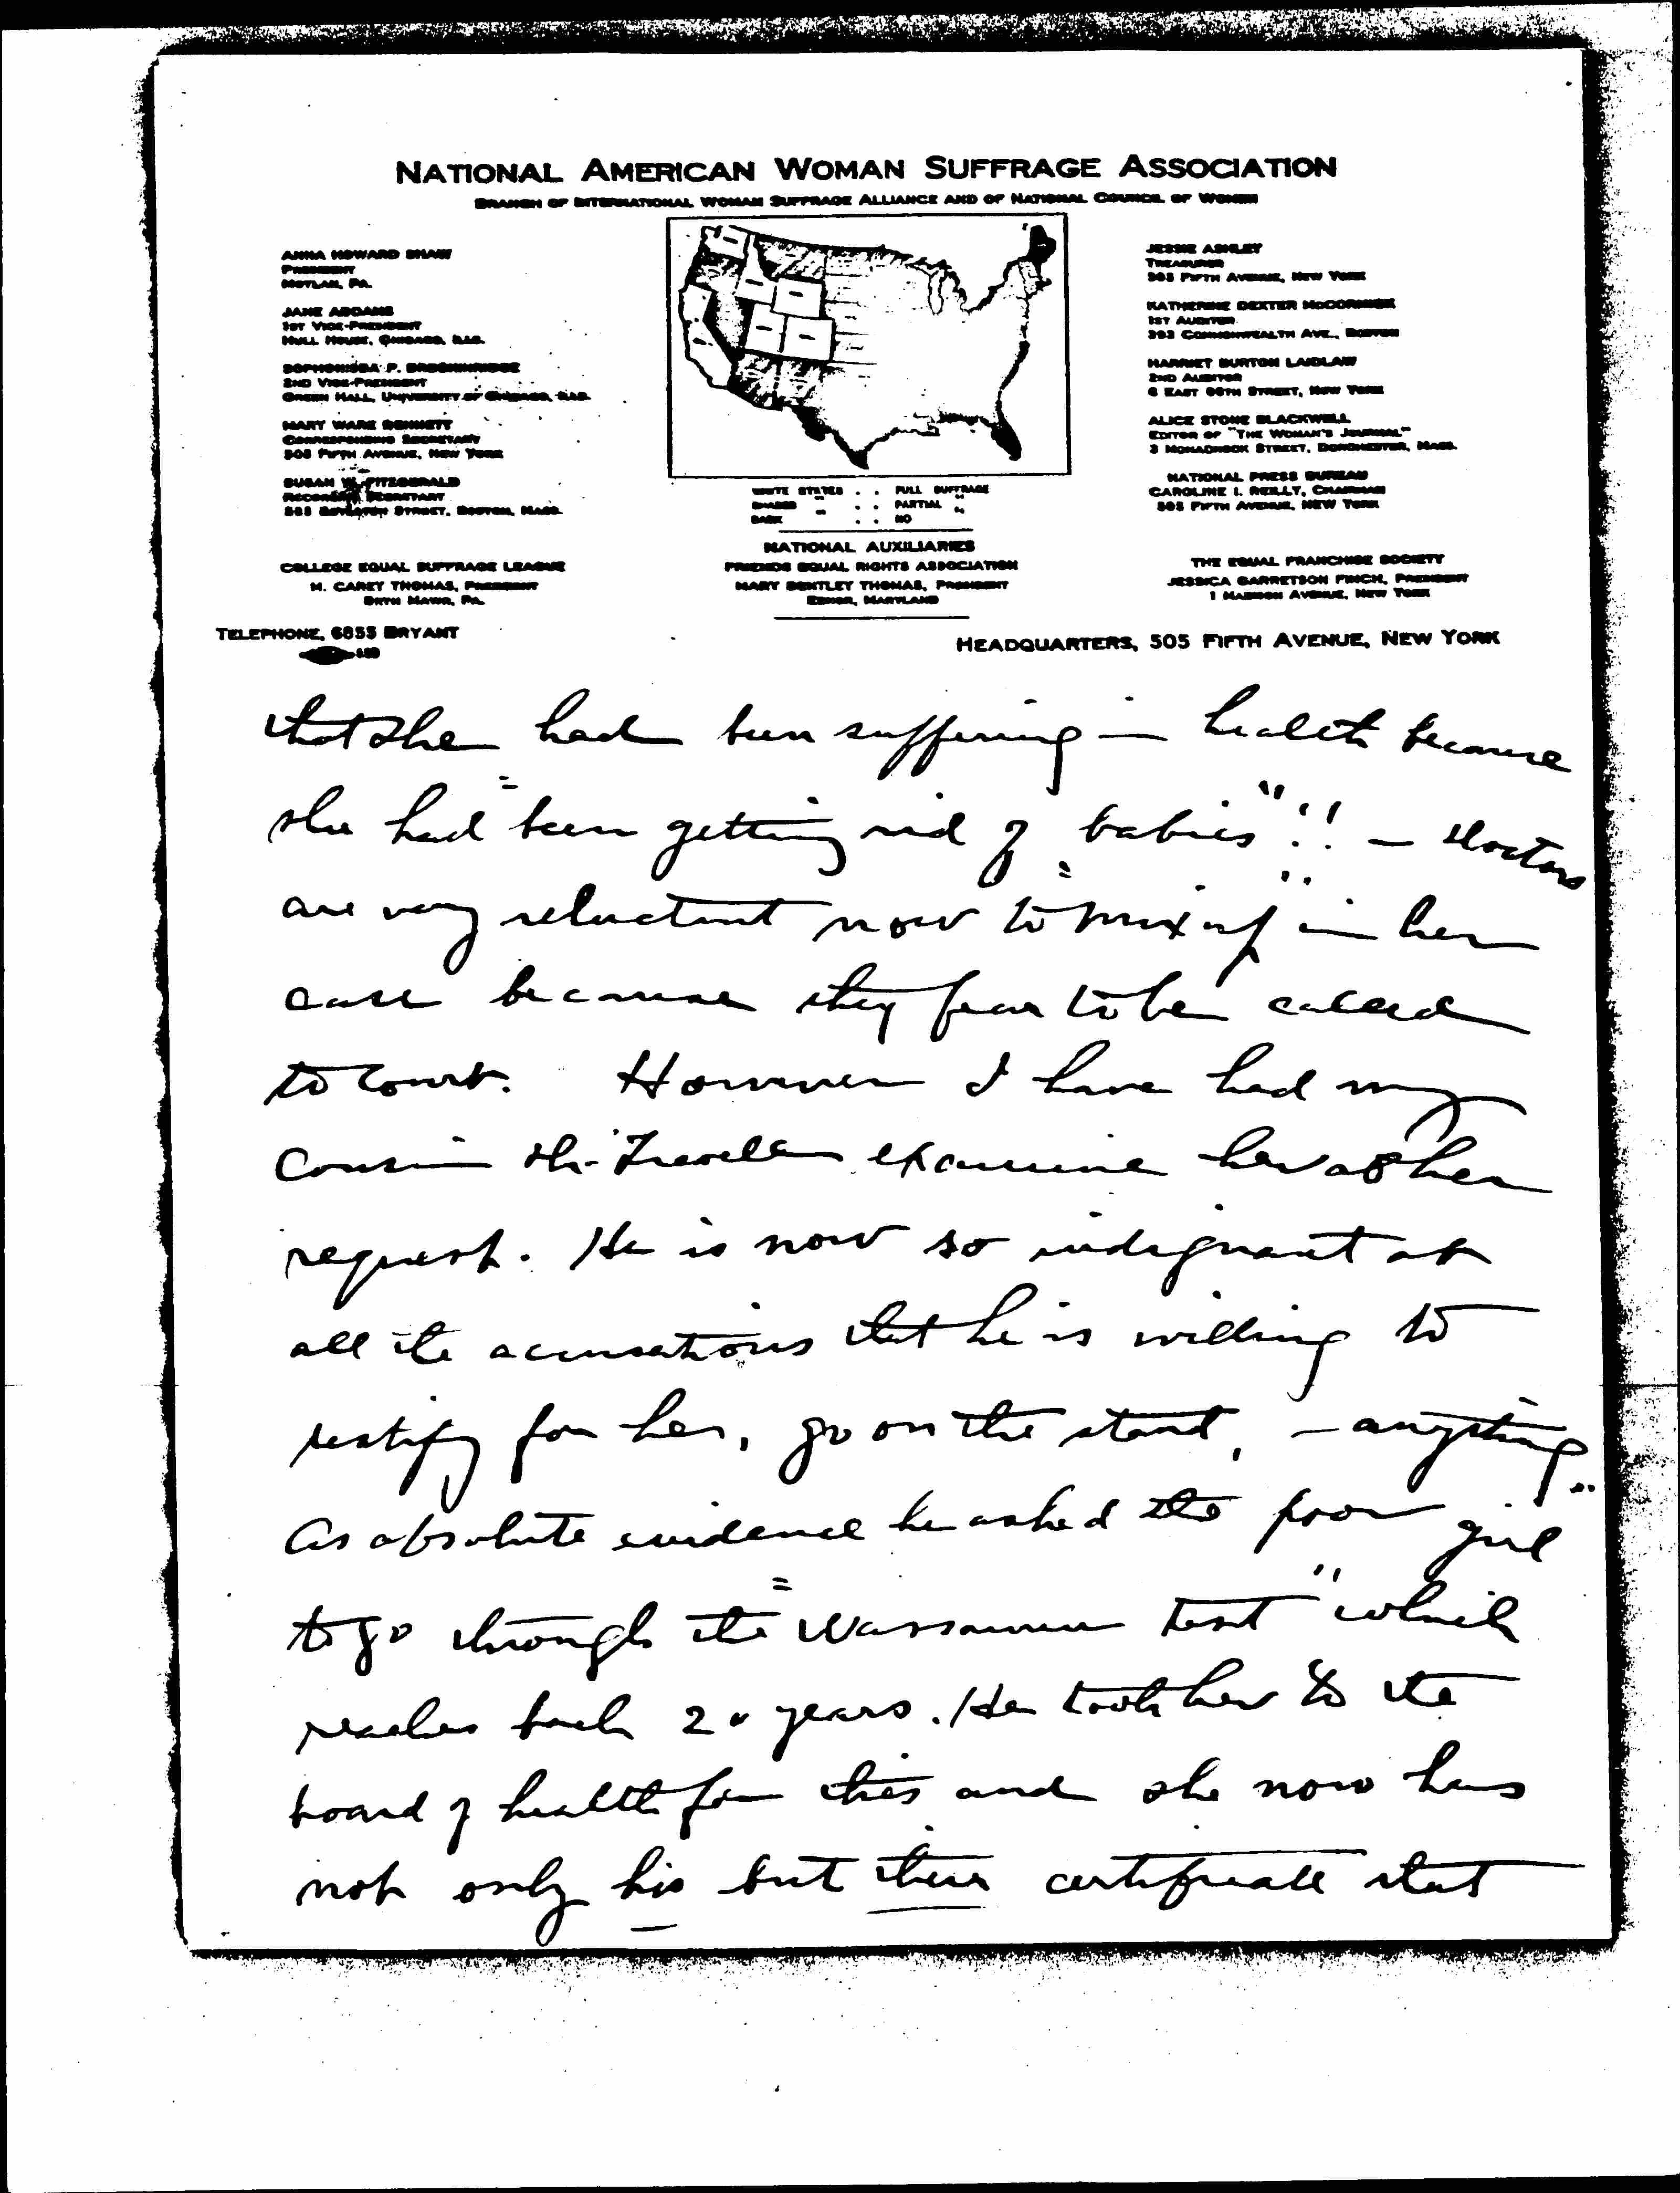 NATIONAL AMERICAN WOMAN SUFFRAGE ASSOCIATION
BRANCH OF INTERNATIONAL WOMAN SUFFRAGE ALLIANCE AND OF NATIONAL COUNCIL OF WOMEN
ANNA HOWARD SHAW
PRESIDENT
MOYLAN, PA.
JANE ADDAMS
1ST VICE-PRESIDENT
HULL HOUSE, CHICAGO, ILLS.
SOPHONISBA P. BRECKINRIDGE
2ND VICE-PRESIDENT
GREEN HALL, UNIVERSITY OF CHICAGO, ILLS.
MARY WARE DENNETT
CORRESPONDING SECRETARY
505 FIFTH AVENUE, NEW YORK
SUSAN W. FITZGERALD
RECORDING SECRETARY
585 BOYLSTON STREET, BOSTON, MASS.
JESSIE ASHLEY
TREASURER
505 FIFTH AVENUE, NEW YORK
KATHERINE DEXTER McCORMICK
1ST AUDITOR
393 COMMONWEALTH AVE., BOSTON
HARRIET BURTON LAIDLAW
2ND AUDITOR
6 EAST 66TH STREET, NEW YORK
ALICE STONE BLACKWELL
EDITOR OF "THE WOMAN'S JOURNAL"
3 MONADNOCK STREET, DORCHESTER, MASS.
NATIONAL PRESS BUREAU
CAROLINE I. REILLY, CHAIRMAN
505 FIFTH AVENUE, NEW YORK
WHITE STATES . . FULL SUFFRAGE
SHADED " . . PARTIAL "
DARK " . . NO
NATIONAL AUXILIARIES
COLLEGE EQUAL SUFFRAGE LEAGUE
M. CAREY THOMAS, PRESIDENT
BRYN MAWR, PA.
FRIENDS EQUAL RIGHTS ASSOCIATION
MARY BENTLEY THOMAS, PRESIDENT
EDNOR, MARYLAND
THE EQUAL FRANCHISE SOCIETY
JESSICA GARRETSON FINCH, PRESIDENT
1 MADISON AVENUE, NEW YORK
TELEPHONE, 6855 BRYANT
HEADQUARTERS, 505 FIFTH AVENUE, NEW YORK
that she had been suffering in health because
she had "been getting rid of babies"!! – Doctors
are very reluctant now to "mix up" in her
case because they fear to be called
to court. However I have had my
Cousin Dr. examine her at her
request. He is now so indignant at
all the accusations that he is willing to
testify for her, go on the stand, – anything.
As absolute evidence he asked the poor girl
to go through the "Wasserman test" which
reaches back 20 years. He took her to the
board of health for this and she now has
not only his but their certificate that